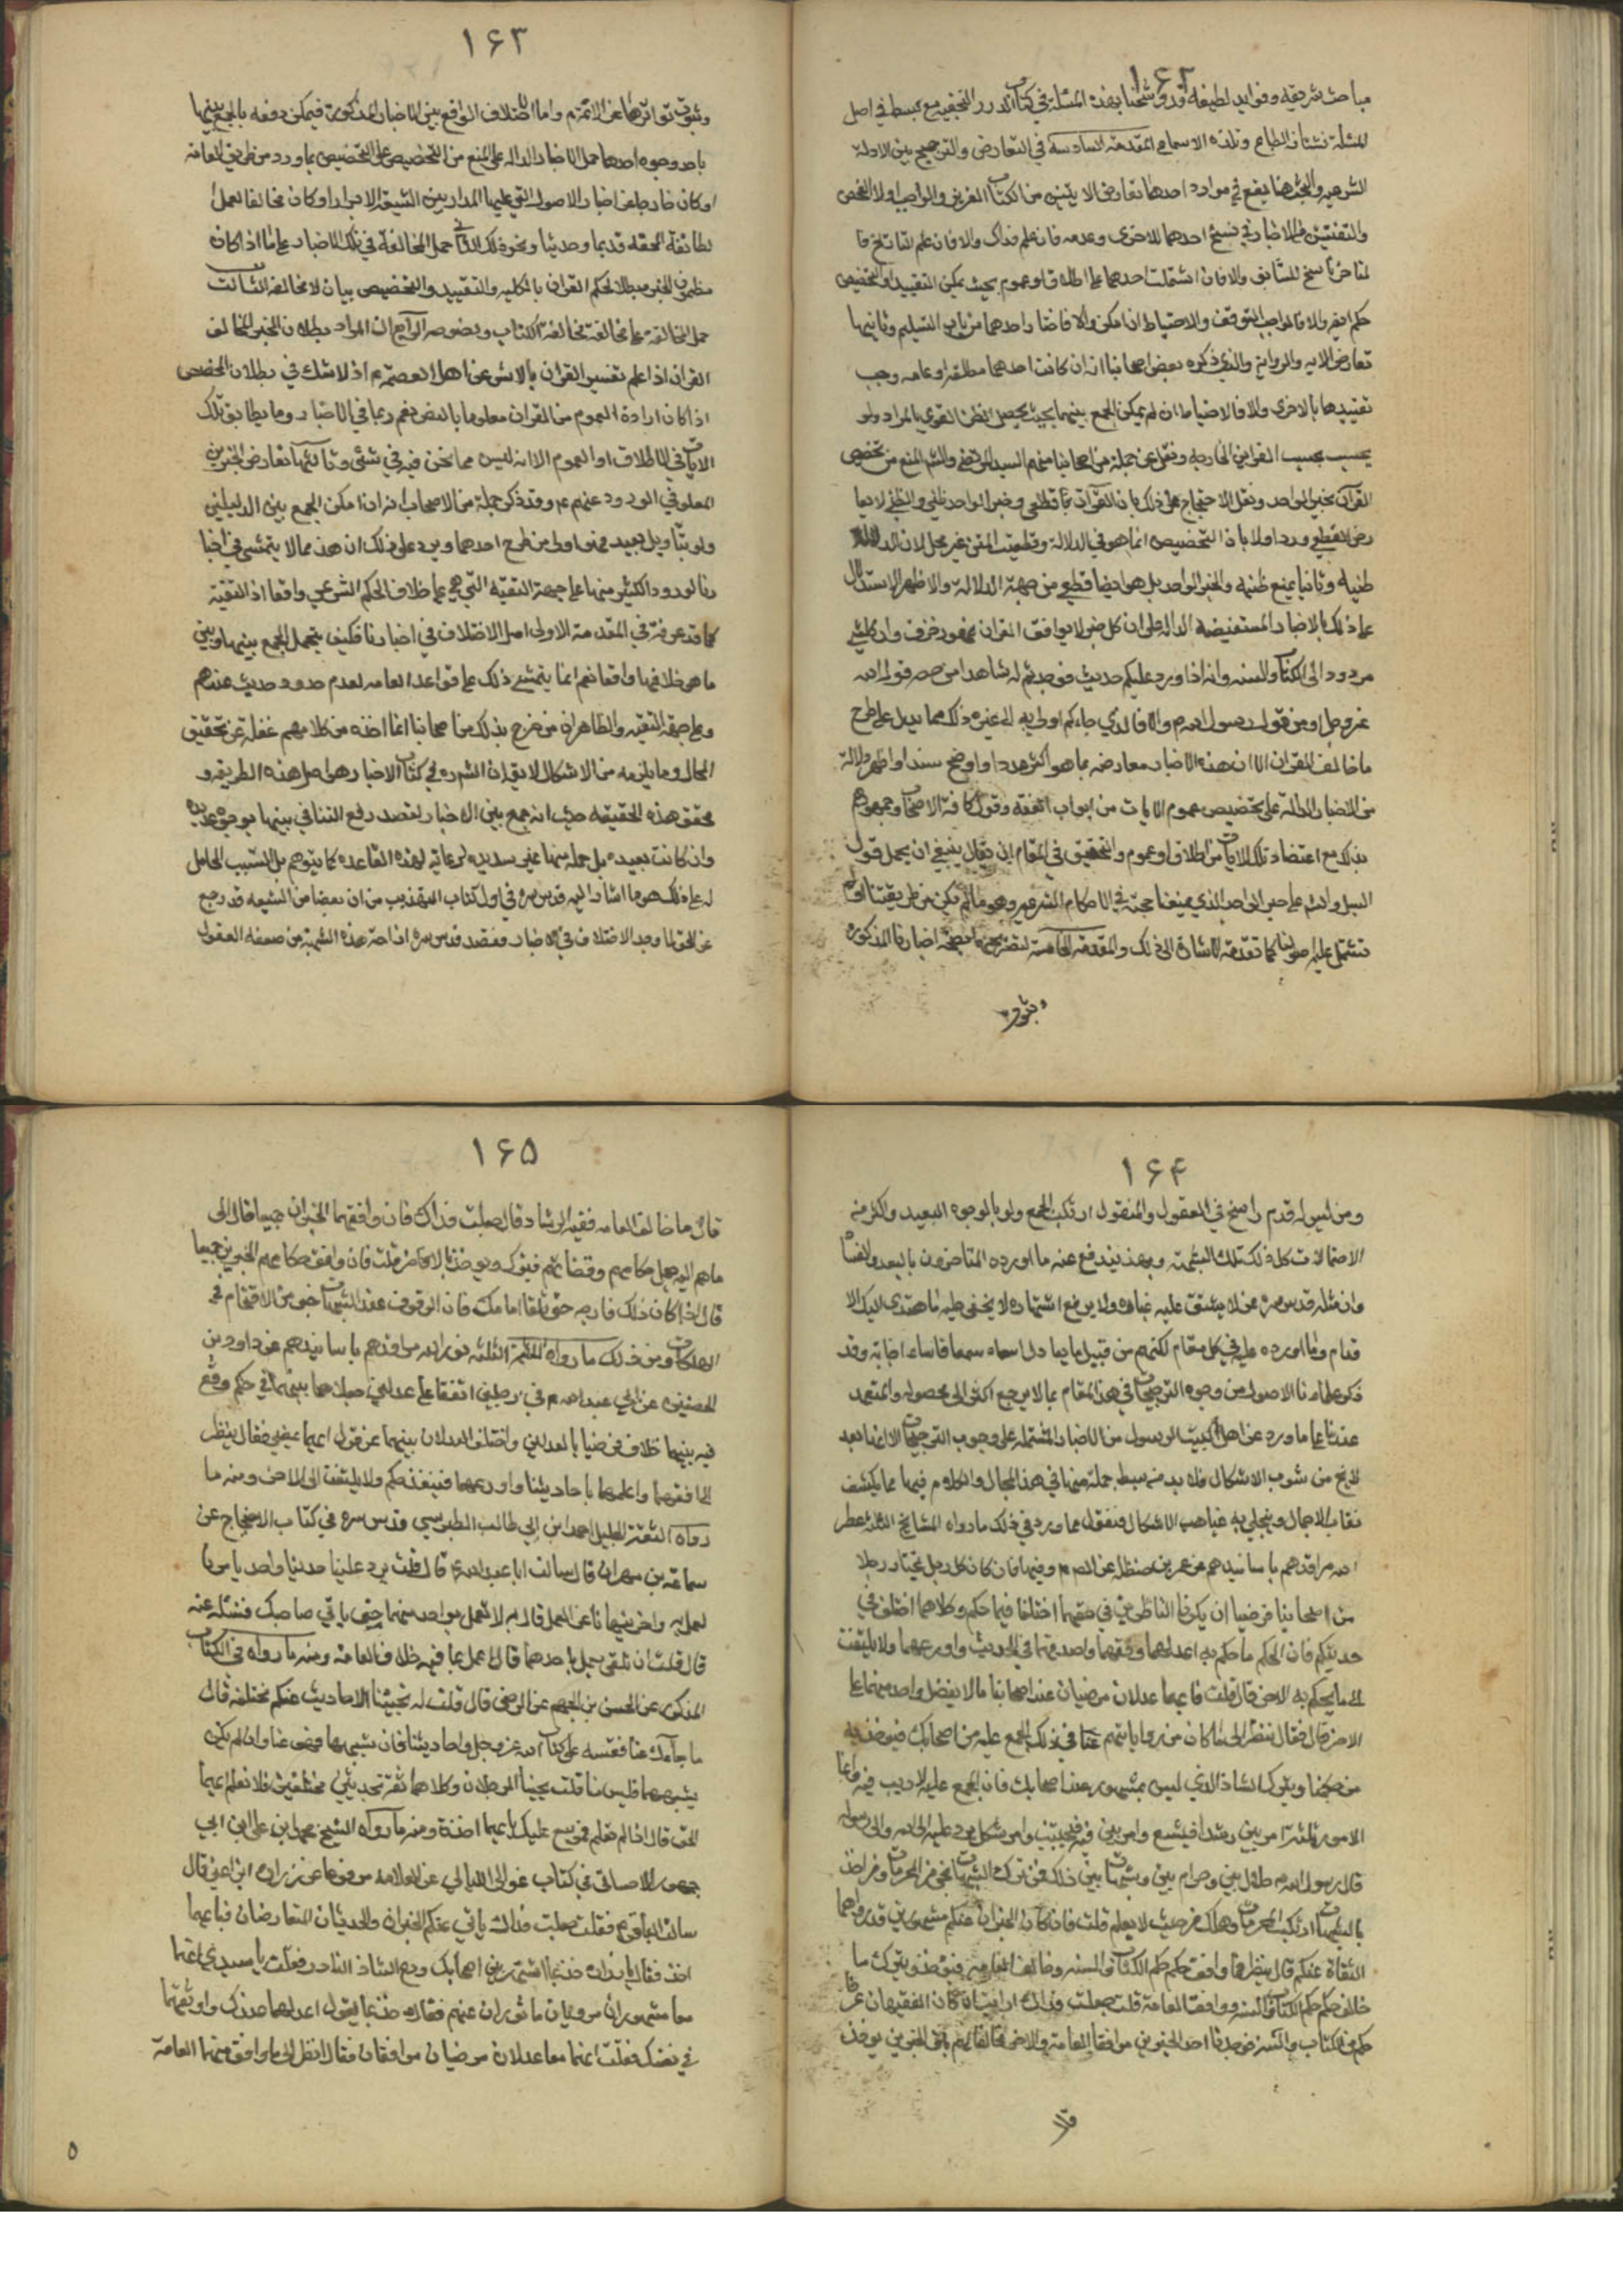 ١۶٢
مباحث شريفه وفوايد لطيفه وقد وشحنا بهذه المسئلة في كتاب الدرر النجفيه مع بسط في اصل
المسئلة تشتاق الطباع وتلذه الاسماع المقدمة السادسة في التعارض والترجيح بين الادلة
الشرعيه والبحث هنا يقع في موارد احدها تعارض الايتين من الكتاب العزيز والواجب اولا الفحص
والتفتيش في الاخبار في نسخ احدهما للاخرى وعدمه فان علم فذاك والا فان علم التاريخ فا
لمتاخر ناسخ للسابق والا فان اشتملت احدهما على اطلاق او عموم بحيث يمكن التقييد او التخصيص
حكم به والا فالواجب التوقف والاحتياط ان امكن والا فاختار احدهما من باب التسليم وثانيها
تعارض الايه والروايه والذي ذكره بعض اصحابنا انه ان كانت احدهما مطلقة او عامه وجب
تقييدها بالاخرى والا فالاحتياط ان لم يمكن الجمع بينهما بحيث يحصل الظن القوي بالمراد ولو
بحسب القراين الخارجيه ونقل عن جملة من اصحابنا منهم السيد المرتضى والشيخ المنع من تخصيص
القرآن بخبر الواحد ونقل الاحتجاج على ذلك بان القرآن قطعي وخبر الواحد ظني والظني لا يعا
رض القطعي ورد اولا بان التخصيص انما هو في الدلالة وقطعية المتن غير مجد لان الدلالة
ظنيه وثانيا بمنع ظنيه الخبر الواحد بل هو ايضا قطعي من جهة الدلالة والاظهر الاستدلال
على ذلك بالاخبار المستفيضه الدالة على ان كل خبر لا يوافق القران فهو زخرف وان كل شئ
مردود الى الكتاب والسنه وانه اذا ورد عليكم حديث فوجدتم له شاهدا من قول الله
عزوجل او من قول رسول الله م والا فالذي جاءكم اولى به الى غير ذلك مما يدل على طرح
ما خالف القران الا ان هذه الاخبار معارضه بما هو اكثر عددا واوضح سندا واظهر دلالة
من الاخبار الدالة على تخصيص عموم الايات من ابواب الفقه وقول كافة الاصحاب وجمهورهم
بذلك مع اعتضاد تلك الايات من اطلاق او عموم والتحقيق في المقام ان يقال ينبغي ان يحمل قول
السيد والشيخ على خبر الواحد الذي يمنعنا حجته في الاحكام الشرعيه وهو ما لم يكن من طريقتنا او لم
تشتمل عليه اصولنا كما تقدمت الاشارة الى ذلك والمقدمة الخامسة اخبارنا المذكوره
وثبوت
١۶٣
وثبوت تواترها عن الائمة م واما الاختلاف الواقع بين الاخبار المذكورة فيمكن دفعه بالجمع بينها
باحد وجوه احدها حمل الاخبار الدالة على المنع من التخصيص على التخصيص بما ورد من طريق العامة
او كان خارجا عن اخبار الاصول التي عليها المدار بين الشيعة الابرار او كان مخالفا لعمل
الطائفة المحقه قديما وحديثا ونحو ذلك الثاني حمل المخالفة في تلك الاخبار على ما اذا كان
مضمون الخبر مبطلا لحكم القران بالكليه والتقييد والتخصيص بيان لا مخالفة الثالث
حمل المخالفة على مخالفة الكتاب وبخصوصه الراجع الى المراد بطلان الخبر المخالف
القران اذا علم تفسير القران بالاثر عن اهل العصمة م اذ لا شك في بطلان المخصص
اذا كان ارادة العموم من القران معلوما بالنص نعم ربما في الاخبار وما يطابق تلك
الايات في الاطلاق او العموم الا انه ليس مما نحن فيه في شئ وثالثها تعارض الخبرين
المعلومي الورود عنهم م وقد ذكر جملة من الاصحاب انه ان امكن الجمع بين الدليلين
ولو بتأويل بعيد فهو اولى من طرح احدهما ويرد على ذلك ان هذا مما لا يتمشى في اخبا
رنا لورود الكثير منها على جهة التقية التي هي على خلاف الحكم الشرعي واقعا اذ التقية
كما قد عرفت في المقدمة الاولى اصل الاختلاف في اخبارنا فكيف يتحمل الجمع بينها وبين
ما هو خلافها واقعا نعم انما يتمشى ذلك على قواعد العامه لعدم صدور حديث عندهم
وعلى جهة التقيه والظاهر ان من صرح بذلك من اصحابنا انما اخذه من كلامهم غفلة عن تحقيق
الحال وما يلزمه من الاشكال لا يق ان الشيخ ره في كتابي الاخبار هو اصل هذه الطريقه و
محقق هذه الحقيقه حيث انه جمع بين الاخبار لقصد رفع التنافي بينها بوجوه عديده
وان كانت بعيده بل جملة منها غير سديده لرعايه لهذه القاعده كما يتوهم بل السبب الحامل
له على ذلك هو ما اشار اليه قدس سره في اول كتاب التهذيب من ان بعضا من الشيعه قد رجع
عن الحق لما وجد الاختلاف في الاخبار فقصد قدس سره ازاحة هذه الشبهة من ضعفه العقول
١۶۴
ومن ليس له قدم راسخ في المعقول والمنقول ارتكب الجمع ولو بالوجوه البعيده والكل منه
الاحتمالات كل ذلك لتلك الشبهة وبهذا يندفع عنه ما اورده المتاخرون بالبعد والفساد
وان مثله قدس سره ممن لا يشق عليه غباره ولا يدفع اشتهاره لا يخفى عليه ما هتدى اليه الا
قدام وما اورده عليه في كل مقام لكنه من قبيل ما يقال اساء سمعا فاساء اجابة وقد
ذكر علماءنا الاصول من وجوه الترجيحات في هذا المقام بما لا يرجع اكثره الى محصول والمعتمد
عندنا على ما ورد عن اهل البيت الرسول من الاخبار المشتمله على وجوب الترجيحات الا انها بعد
لا تخ من شوب الاشكال فلا بد من بسط جملة منها في هذا المجال والكلام فيها بما يكشف
نقاب الاجمال وينجلي به غياهب الاشكال فنقول مما ورد في ذلك ما رواه المشايخ الثلاثة عطر
الله مراقدهم باسانيدهم عن عمر بن حنظله عن الصم م وفيها فان كان كل رجل يختار رجلا
من اصحابنا فرضيا ان يكونا الناظرين في حقهما اختلفا فيما حكم وكلاهما اختلف في
حديثكم فان الحكم ما حكم به اعدلهما وافقههما واصدقهما في الحديث واورعهما ولا يلتفت
الى ما يحكم به الاخر قال قلت فانهما عدلان مرضيان عند اصحابنا لا يفضل واحد منهما على
الاخر قال فقال ينظر الى ما كان من رواياتهم عنا في ذلك المجمع عليه من اصحابك فيؤخذ به
من حكمنا ويترك الشاذ الذي ليس بمشهور عند اصحابك فان المجمع عليه لا ريب فيه وانما
الامور ثلثة امر بين رشده فيتبع وامر بين غيه فيجتنب وامر مشكل يرد علمه الى الله والى رسوله
قال رسول الله م حلال بين وحرام بين وشبهات بين ذلك فمن ترك الشبهات نجى من المحرمات ومن اخذ
بالشبهات ارتكب المحرمات وهلك من حيث لا يعلم قلت فان كان الخبران عنكم مشهورين قد رواهما
الثقاة عنكم قال ينظر فما وافق حكمه حكم الكتاب والسنه وخالف العامه فيؤخذ به ويترك ما
خالف حكمه حكم الكتاب والسنه ووافق العامة قلت جعلت فداك ارايت ان كان الفقيهان عرفا
حكمه من الكتاب والسنه فوجدنا احد الخبرين موافقا للعامة والاخر مخالفا لهم باي الخبرين يؤخذ
قال
١۶۵
قال ما خالف العامه ففيه الرشاد قال جعلت فداك فان وافقهما الخبران جميعا قال الى
ما هم اليه اميل حكامهم وقضاتهم فيترك ويؤخذ بالاخر قلت فان وافق حكامهم الخبرين جميعا
قال اذا كان ذلك فارجه حتى تلقى امامك فان الوقوف عند الشبهات خير من الاقتحام في
الهلكات ومن ذلك ما رواه الائمة الثلثه نور الله مراقدهم باسانيدهم عن داود بن
الحصين عن ابي عبدالله م في رجلين اتفقا على عدلين جعلاهما بينهما في حكم وقع
فيه بينهما خلاف فرضيا بالعدلين واختلف العدلان بينهما عن قول ايهما يمضي فقال ينظر
الى افقههما واعلمهما باحاديثنا واورعهما فينفذ حكمه ولا يلتفت الى الاخر ومنه ما
رواه الثقة الجليل احمد ابن ابي طالب الطبرسي قدس سره في كتاب الاحتجاج عن
سماعة بن مهران قال سالت ابا عبدالله م قال قلت يرد علينا حديثان واحد يامرنا
لعمل به واخر ينهانا عن العمل قال م لا تعمل بواحد منهما حتى ياتي صاحبك فتسئله عنه
قال قلت ان نعمل باحدهما قال اعمل بما فيه خلاف العامة ومنه ما رواه في الكتاب
المذكور عن الحسن بن الجهم عن الرضي قال قلت له تجيئنا الاحاديث عنكم مختلفه قال
ما جاءك عنا فقسه على كتاب الله عزوجل واحاديثنا فان شبهها فهو عنا وان لم يكن
يشبههما فليس منا قلت يجيئنا الرجلان وكلاهما ثقة بحديثين مختلفين فلا نعلم ايهما
الحق قال اذا لم تعلم فموسع عليك بايهما اخذت ومنه ما رواه الشيخ محمد ابن علي ابن ابي
جمهور الاحسائي في كتاب غوالي اللئالي عن العلامه مرفوعا عن زراره ابن اعين قال
سالت الباقر م فقلت جعلت فداك ياتي عنكم الخبران والحديثان المتعارضان فبايهما
اخذ فقال يا زراره خذ بما اشتهر بين اصحابك ودع الشاذ النادر فقلت يا سيدي انهما
معا مشهوران مرويان ماثوران عنهم فقال م خذ بما يقول اعدلهما عندك واوثقهما
في نفسك فقلت انهما معا عدلان مرضيان موافقان فقال انظر الى ما وافق منهما العامة
٥